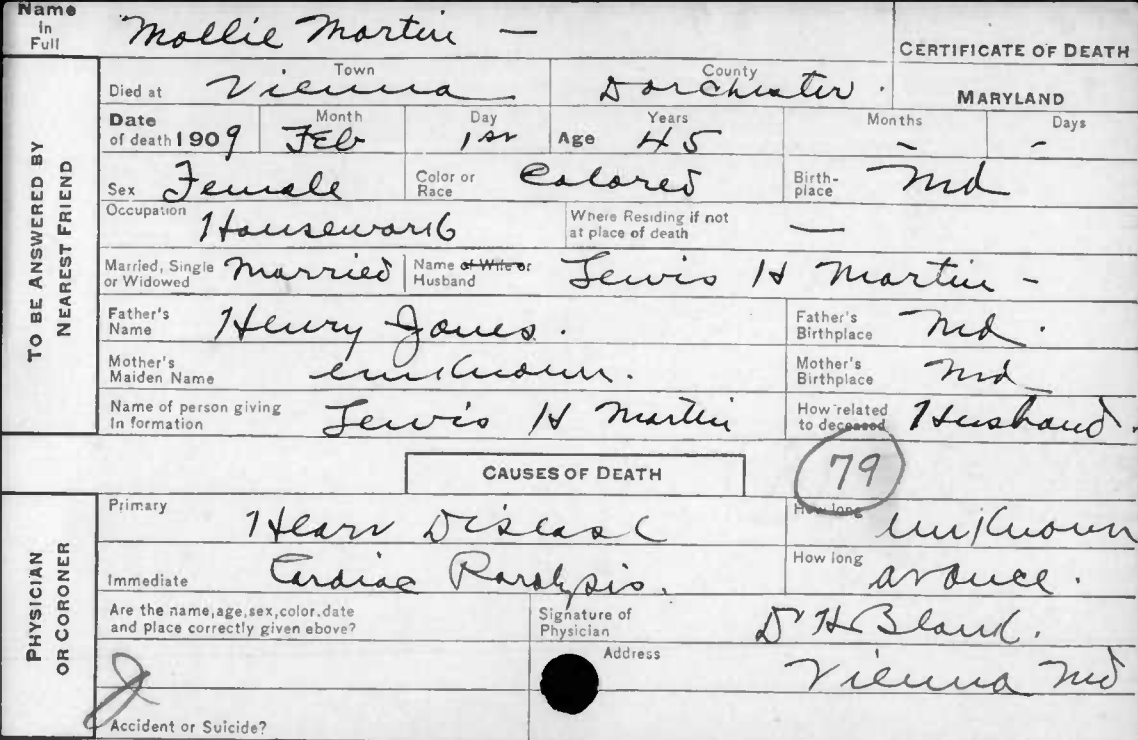 Name in Full Mollie Martin –
CERTIFICATE OF DEATH
TO BE ANSWERED BY NEAREST FRIEND
Died at Town Vienna County Dorchester. MARYLAND
Date of death 1909 Month Feb Day 1st Age Years 45 Months - Days -
Sex Female Color or Race Colored Birth-place Md
Occupation Housework Where Residing if not at place of death —
Married, Single or Widowed Married Name of Wife or Husband Lewis H Martin -
Father's Name Henry Jones. Father's Birthplace Md.
Mother's Maiden Name unknown. Mother's Birthplace Md
Name of person giving In formation Lewis H Martin How related to deceased Husband.
CAUSES OF DEATH 79
PHYSICIAN OR CORONER
Primary Heart Disease How long unknown
Immediate Cardiac Paralysis. How long at once.
Are the name, age, sex, color. date and place correctly given above? Signature of Physician Dr H Bland.
Address Vienna Md
Accident or Suicide?